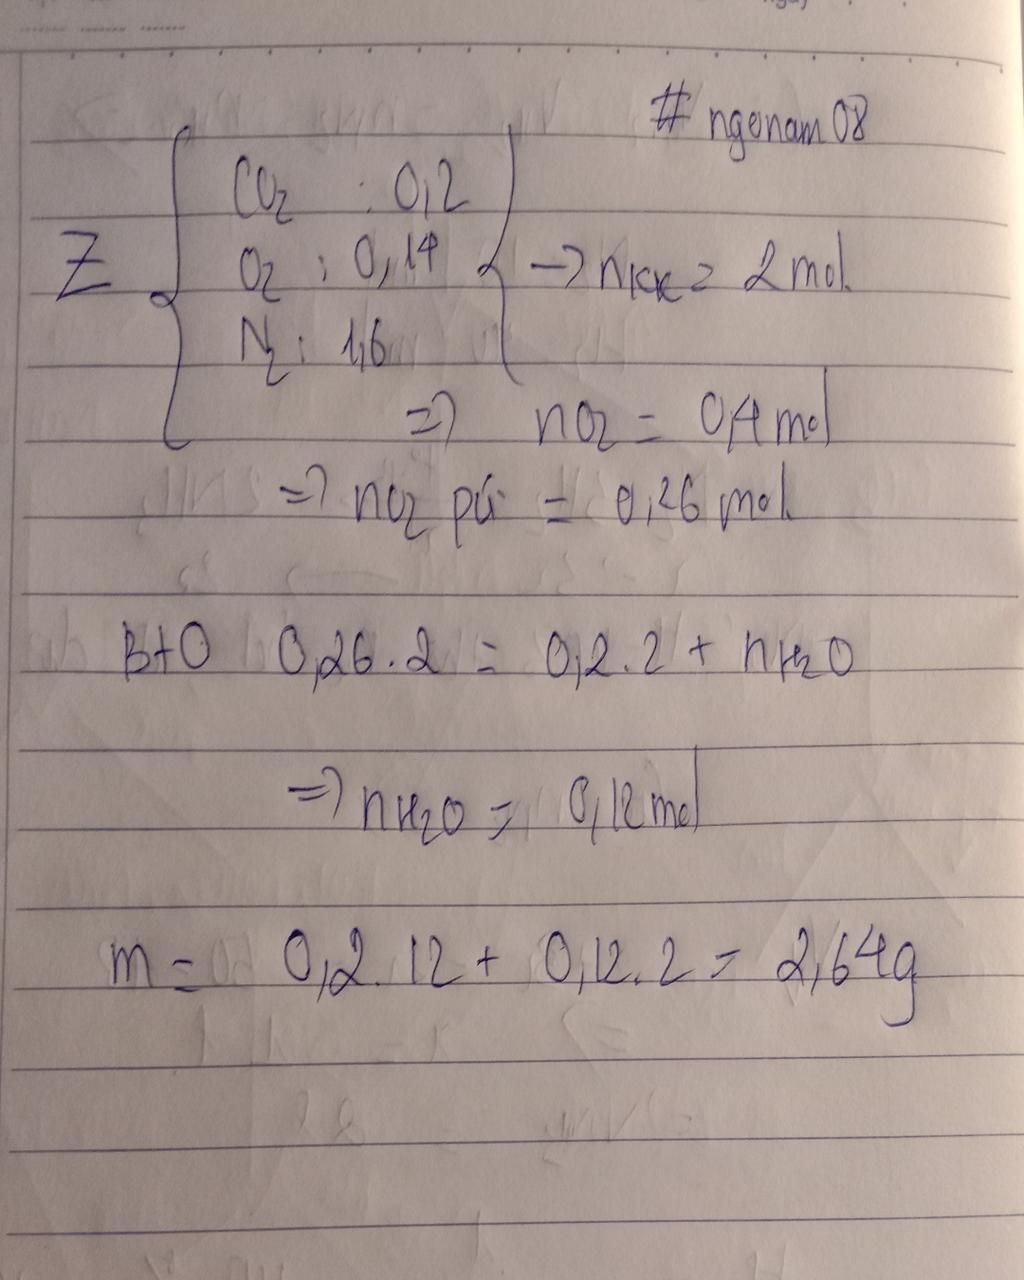 # ngonam08
CO2 : 0,2
Z { O2 : 0,14 } -> nkk = 2 mol
N2 : 1,6
=> nO2 = 0,4 mol
=> nO2 pứ = 0,26 mol
BtO 0,26.2 = 0,2.2 + nH2O
=> nH2O = 0,12 mol
m = 0,2.12 + 0,12.2 = 2,64g